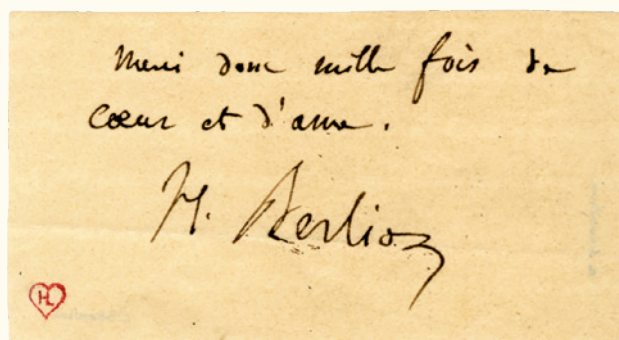 Merci donc mille fois de
cœur et d'âme.
H. Berlioz
HL